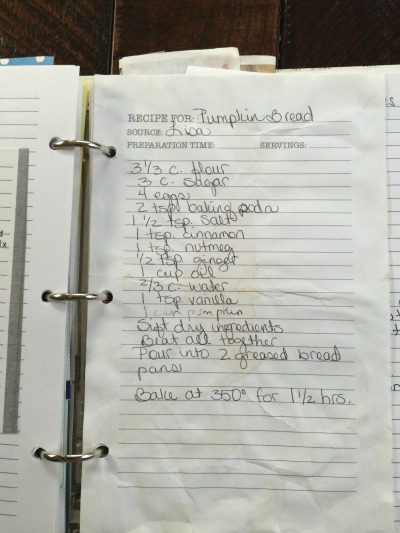 RECIPE FOR: Pumpkin Bread
SOURCE: Lisa
PREPARATION TIME: SERVINGS:
3 1/3 c. flour
3 c. sugar
4 eggs
2 tsp. baking soda
1 1/2 tsp. salt
1 tsp. cinnamon
1 tsp. nutmeg
1/2 tsp. ginger
1 cup oil
2/3 c. water
1 tsp vanilla
1 can pumpkin
Sift dry ingredients
Beat all together
Pour into 2 greased bread
pans
Bake at 350° for 1 1/2 hrs.